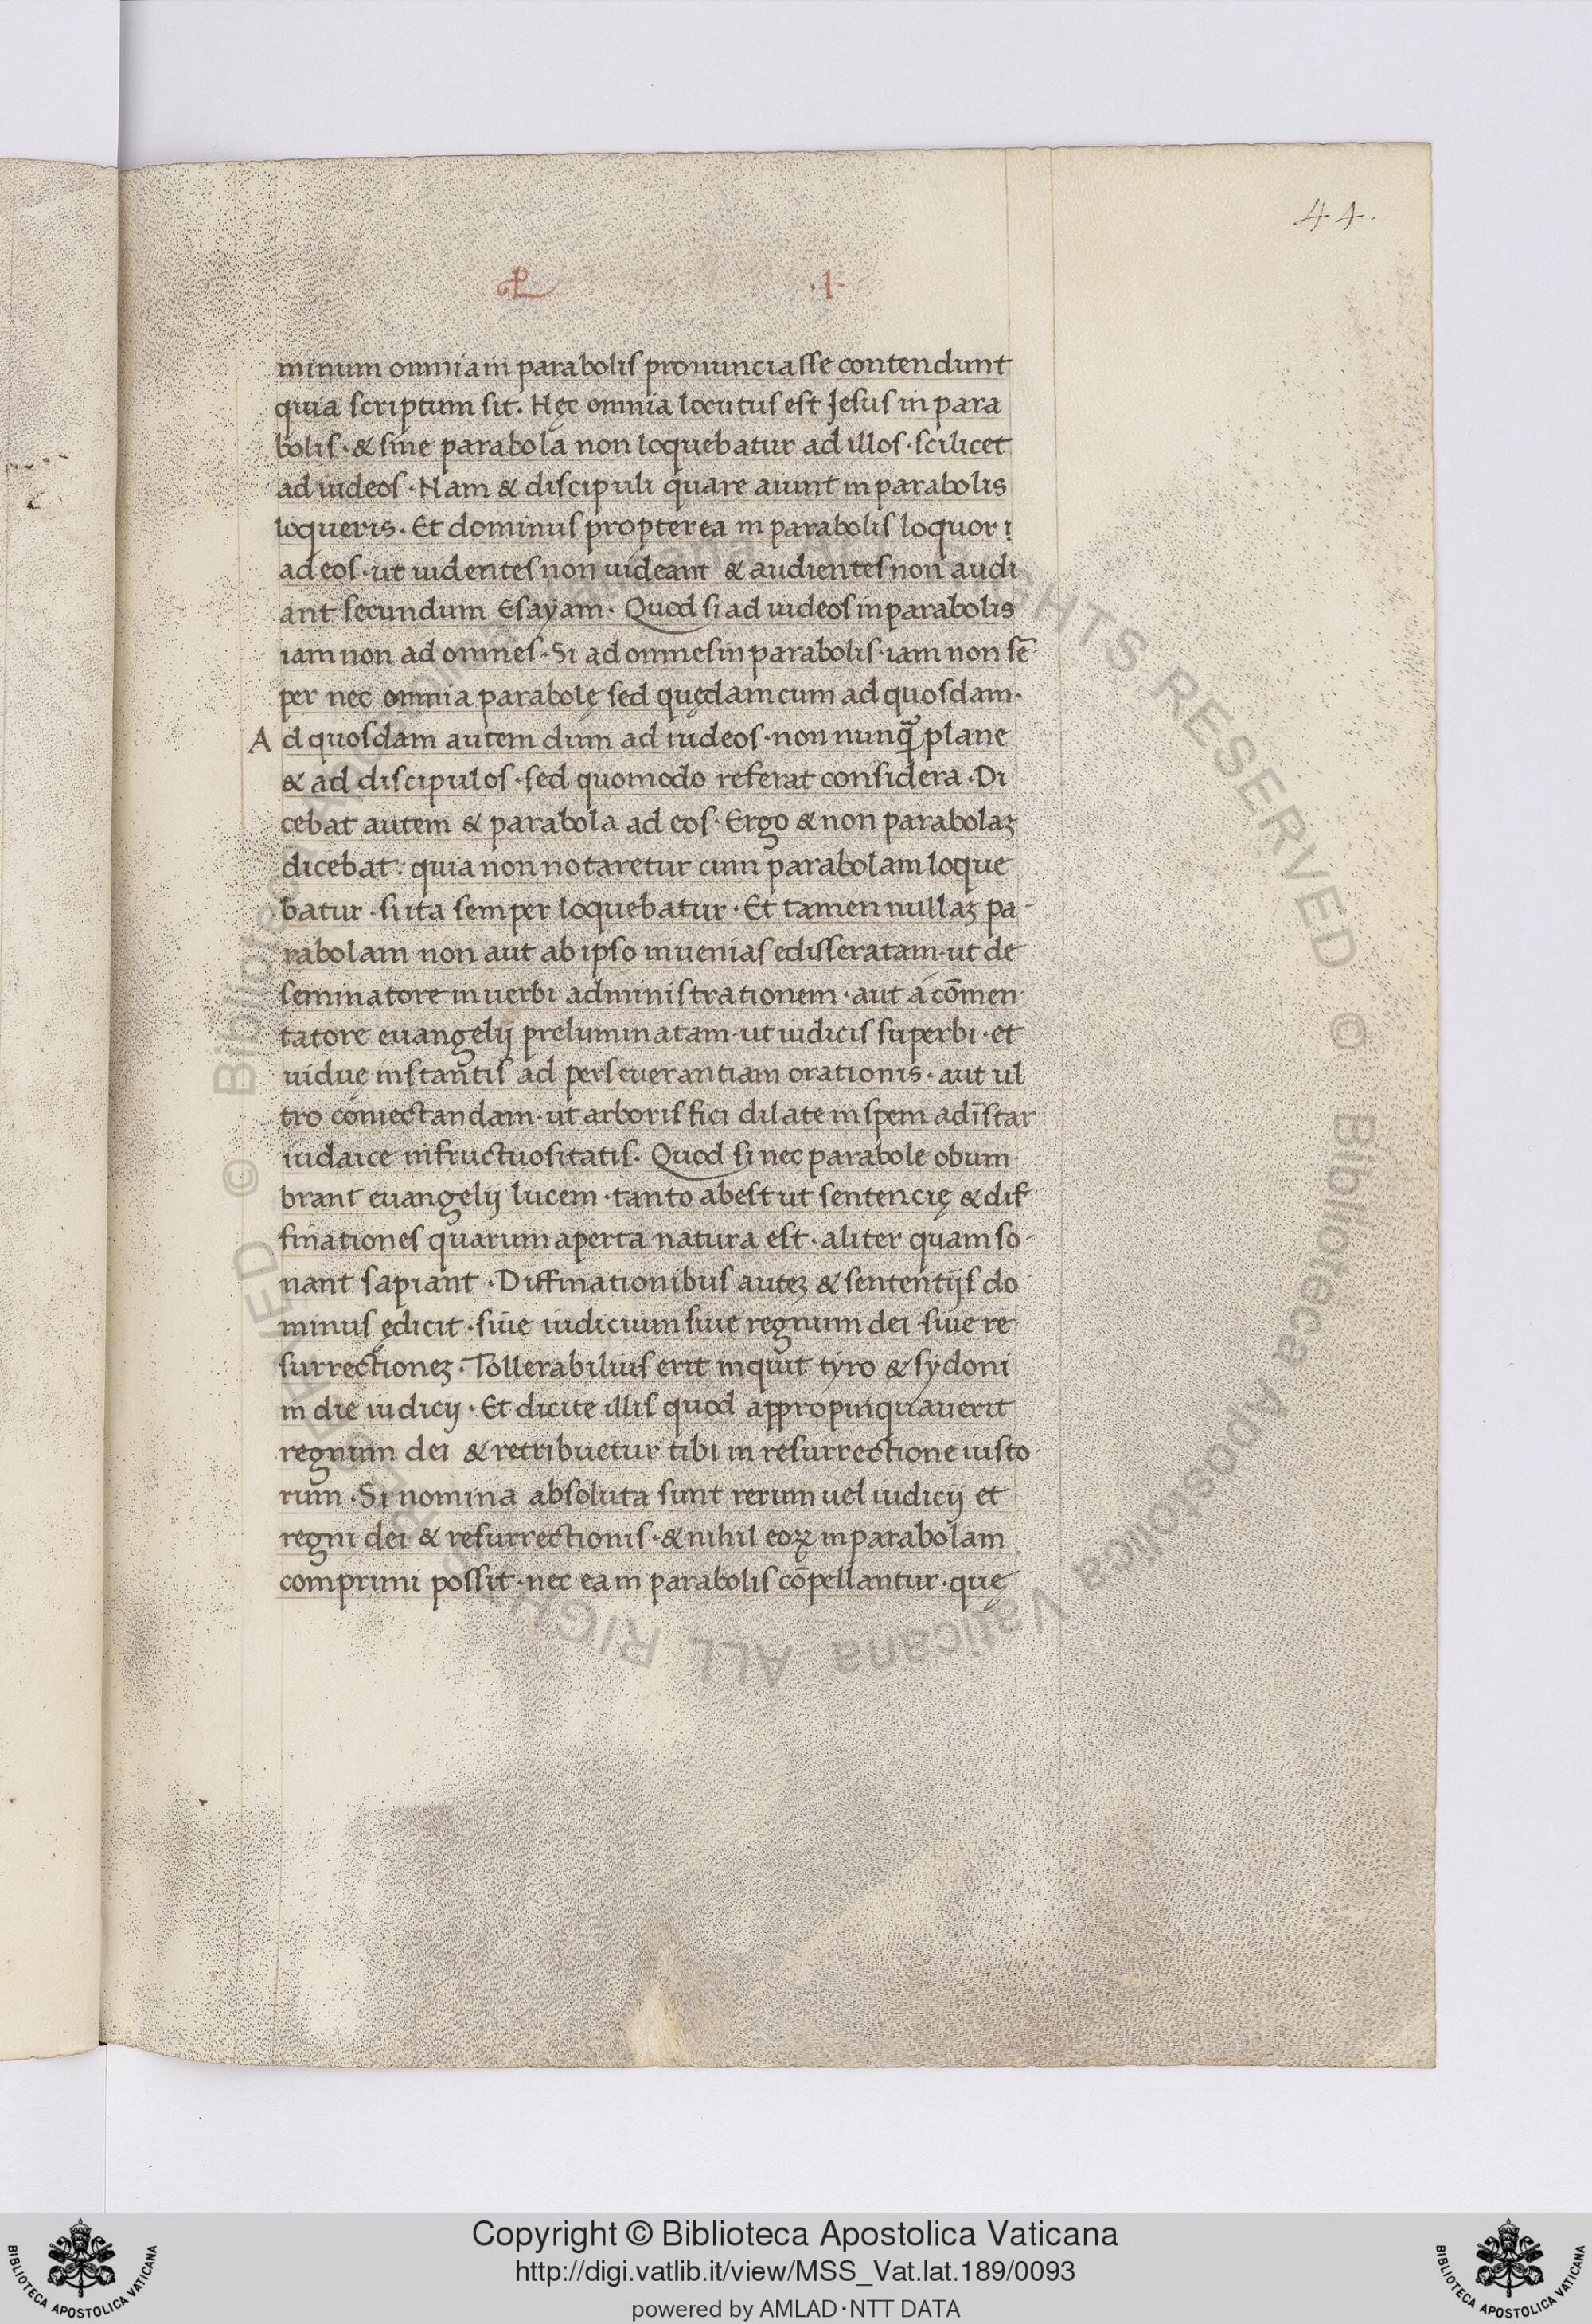 44.
L .I.
minum omnia in parabolis pronunciasse contendunt
quia scriptum sit. Hęc omnia locutus est Jesus in para
bolis · & sine parabola non loquebatur ad illos · scilicet
ad iudeos · Nam & discipuli quare aiunt in parabolis
loqueris · Et dominus propterea in parabolis loquor
ad eos · ut uidentes non uideant & audientes non audi
ant secundum Esayam · Quod si ad iudeos in parabolis
iam non ad omnes · Si ad omnes in parabolis · iam non sē
per nec omnia parabolę sed quędam cum ad quosdam ·
Ad quosdam autem dum ad iudeos · non nunq̃ plane
& ad discipulos · sed quomodo referat considera · Di
cebat autem & parabola ad eos · Ergo & non parabolaʒ
dicebat: quia non notaretur cum parabolam loque
batur · si ita semper loquebatur · Et tamen nullaʒ pa-
rabolam non aut ab ipso inuenias edisseratam · ut de
seminatore in uerbi administrationem · aut a cōmen
tatore euangelij preluminatam · ut iudicis superbi · et
uiduę instantis ad perseuerantiam orationis · aut ul
tro coniectandam · ut arboris fici dilate in spem ad īstar
iudaice infructuositatis. Quod si nec parabole obum
brant euangelij lucem · tanto abest ut sentencię & dif
finationes quarum aperta natura est · aliter quam so-
nant sapiant · Diffinationibus auteʒ & sententijs do
minus ędicit · siue iudicium siue regnum dei siue re
surrectioneʒ · Tollerabilius erit inquit tyro & sydoni
in die iudicij · Et dicite illis quod appropinquauerit
regnum dei & retribuetur tibi in resurrectione iusto
rum · Si nomina absoluta sunt rerum uel iudicij et
regni dei & resurrectionis · & nihil eoꝝ in parabolam
comprimi possit · nec ea in parabolis cōpellantur · quę
© Biblioteca Apostolica Vaticana ALL RIGHTS RESERVED
© Biblioteca Apostolica Vaticana ALL RIGHTS RESERVED
Copyright © Biblioteca Apostolica Vaticana
http://digi.vatlib.it/view/MSS_Vat.lat.189/0093
powered by AMLAD·NTT DATA
BIBLIOTECA APOSTOLICA VATICANA
BIBLIOTECA APOSTOLICA VATICANA